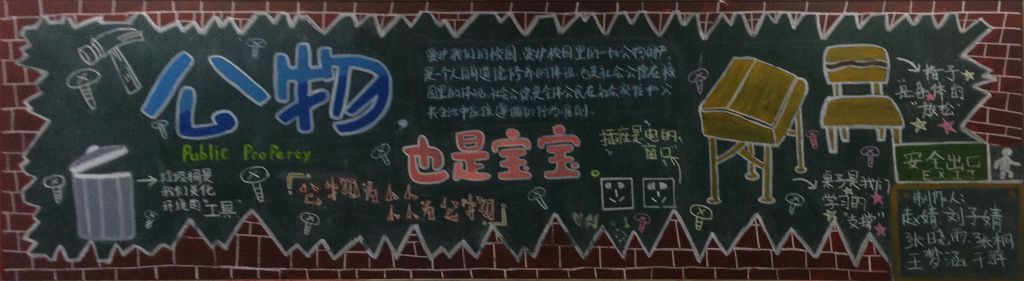 公物,
Public Property
也是宝宝。
爱护我们的校园,爱护校园里的一切公物财产
是个人的道德修养的体现,也是社会公德在校
园里的体现,社会公德是全体公民在社会交往和公
共生活中应该遵循的行为准则。
垃圾桶是
我们美化
环境的"工具"
「公物为人人
人人为公物」
插座是电的
窗口
椅子
是身体的
"放松"
桌子是我们
学习的
"支撑"
安全出口
EXIT
制作人:
赵婧 刘子婧
张晓雨 张桐
王梦涵